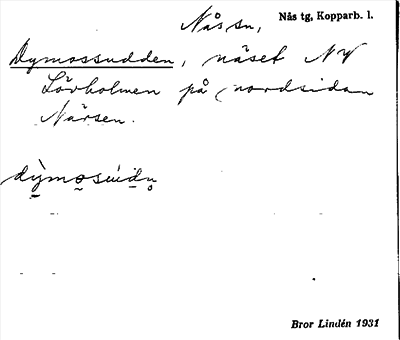 Nås sn, Nås tg, Kopparb. l.
Dymossudden, näset NV
Lövholmen på nordsidan
Närsen.
dỳmo̰súdn̥
Bror Lindén 1931